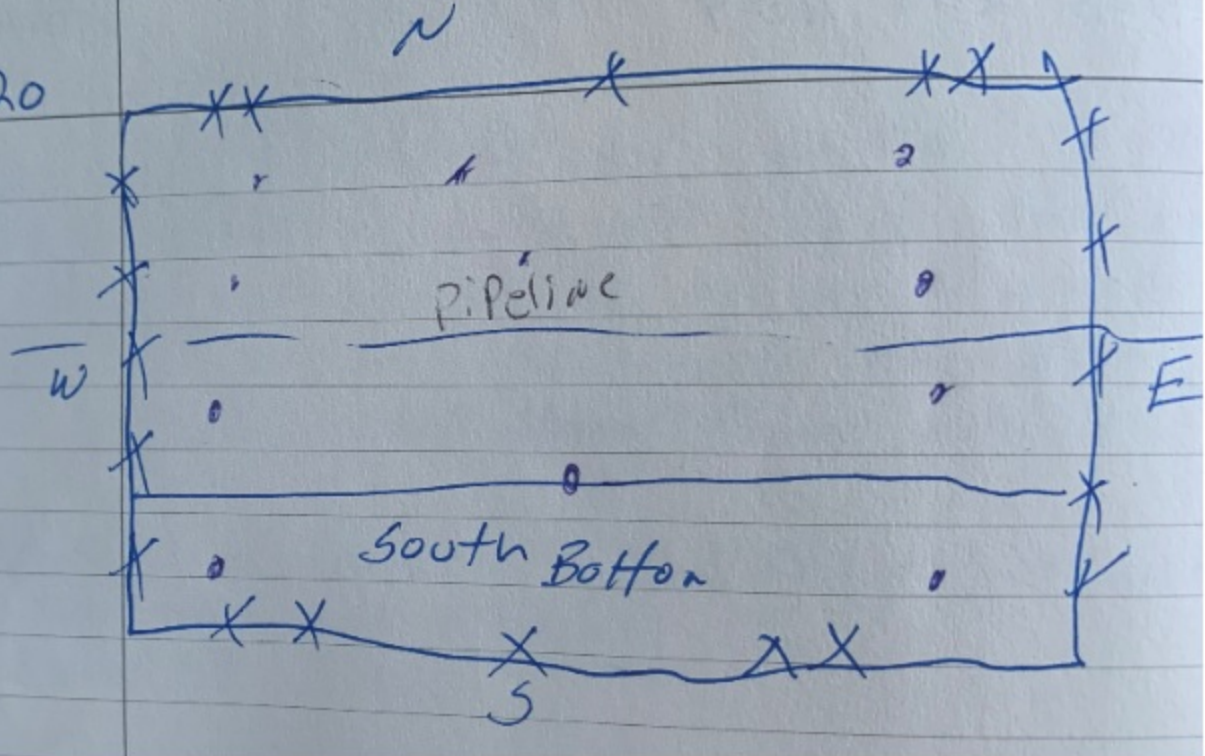 N
20
Pipeline
W
E
South Bottom
S